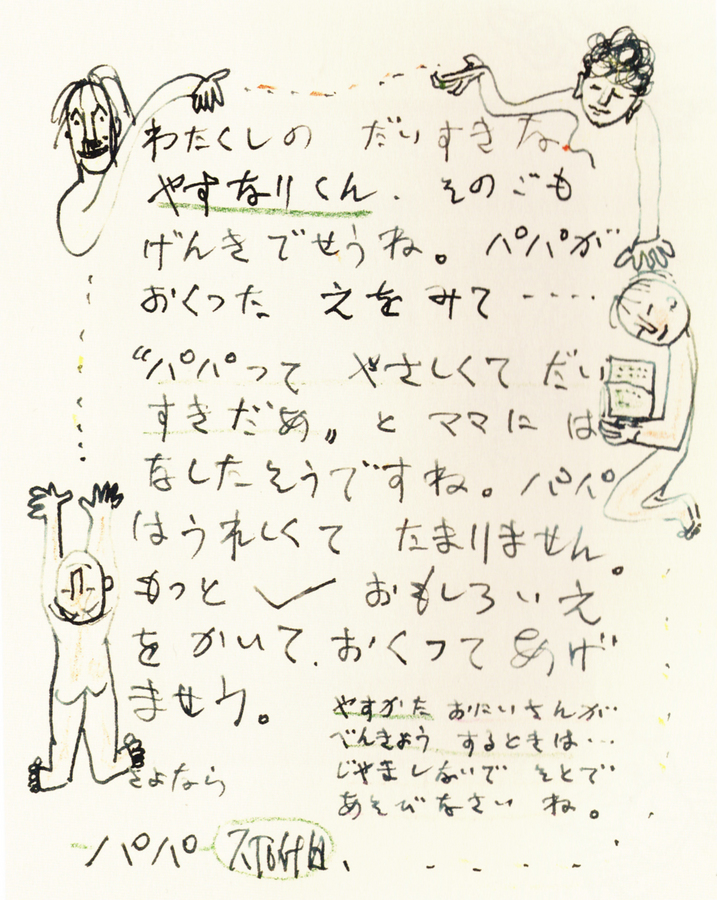 わたくしの だいすきな
やすなりくん. そのごも
げんきでせうね。パパが
おくった えをみて ····
“パパって やさしくて だい
すきだあ〟と ママに は
なしたそうですね。パパ
はうれしくて たまりません。
もっと おもしろいえ
を かいて.おくってあげ
ませう。
やすかた おにいさんが…
べんきょう するときは…
じゃましないで そとで
あそびなさい ね。
さよなら
パパ